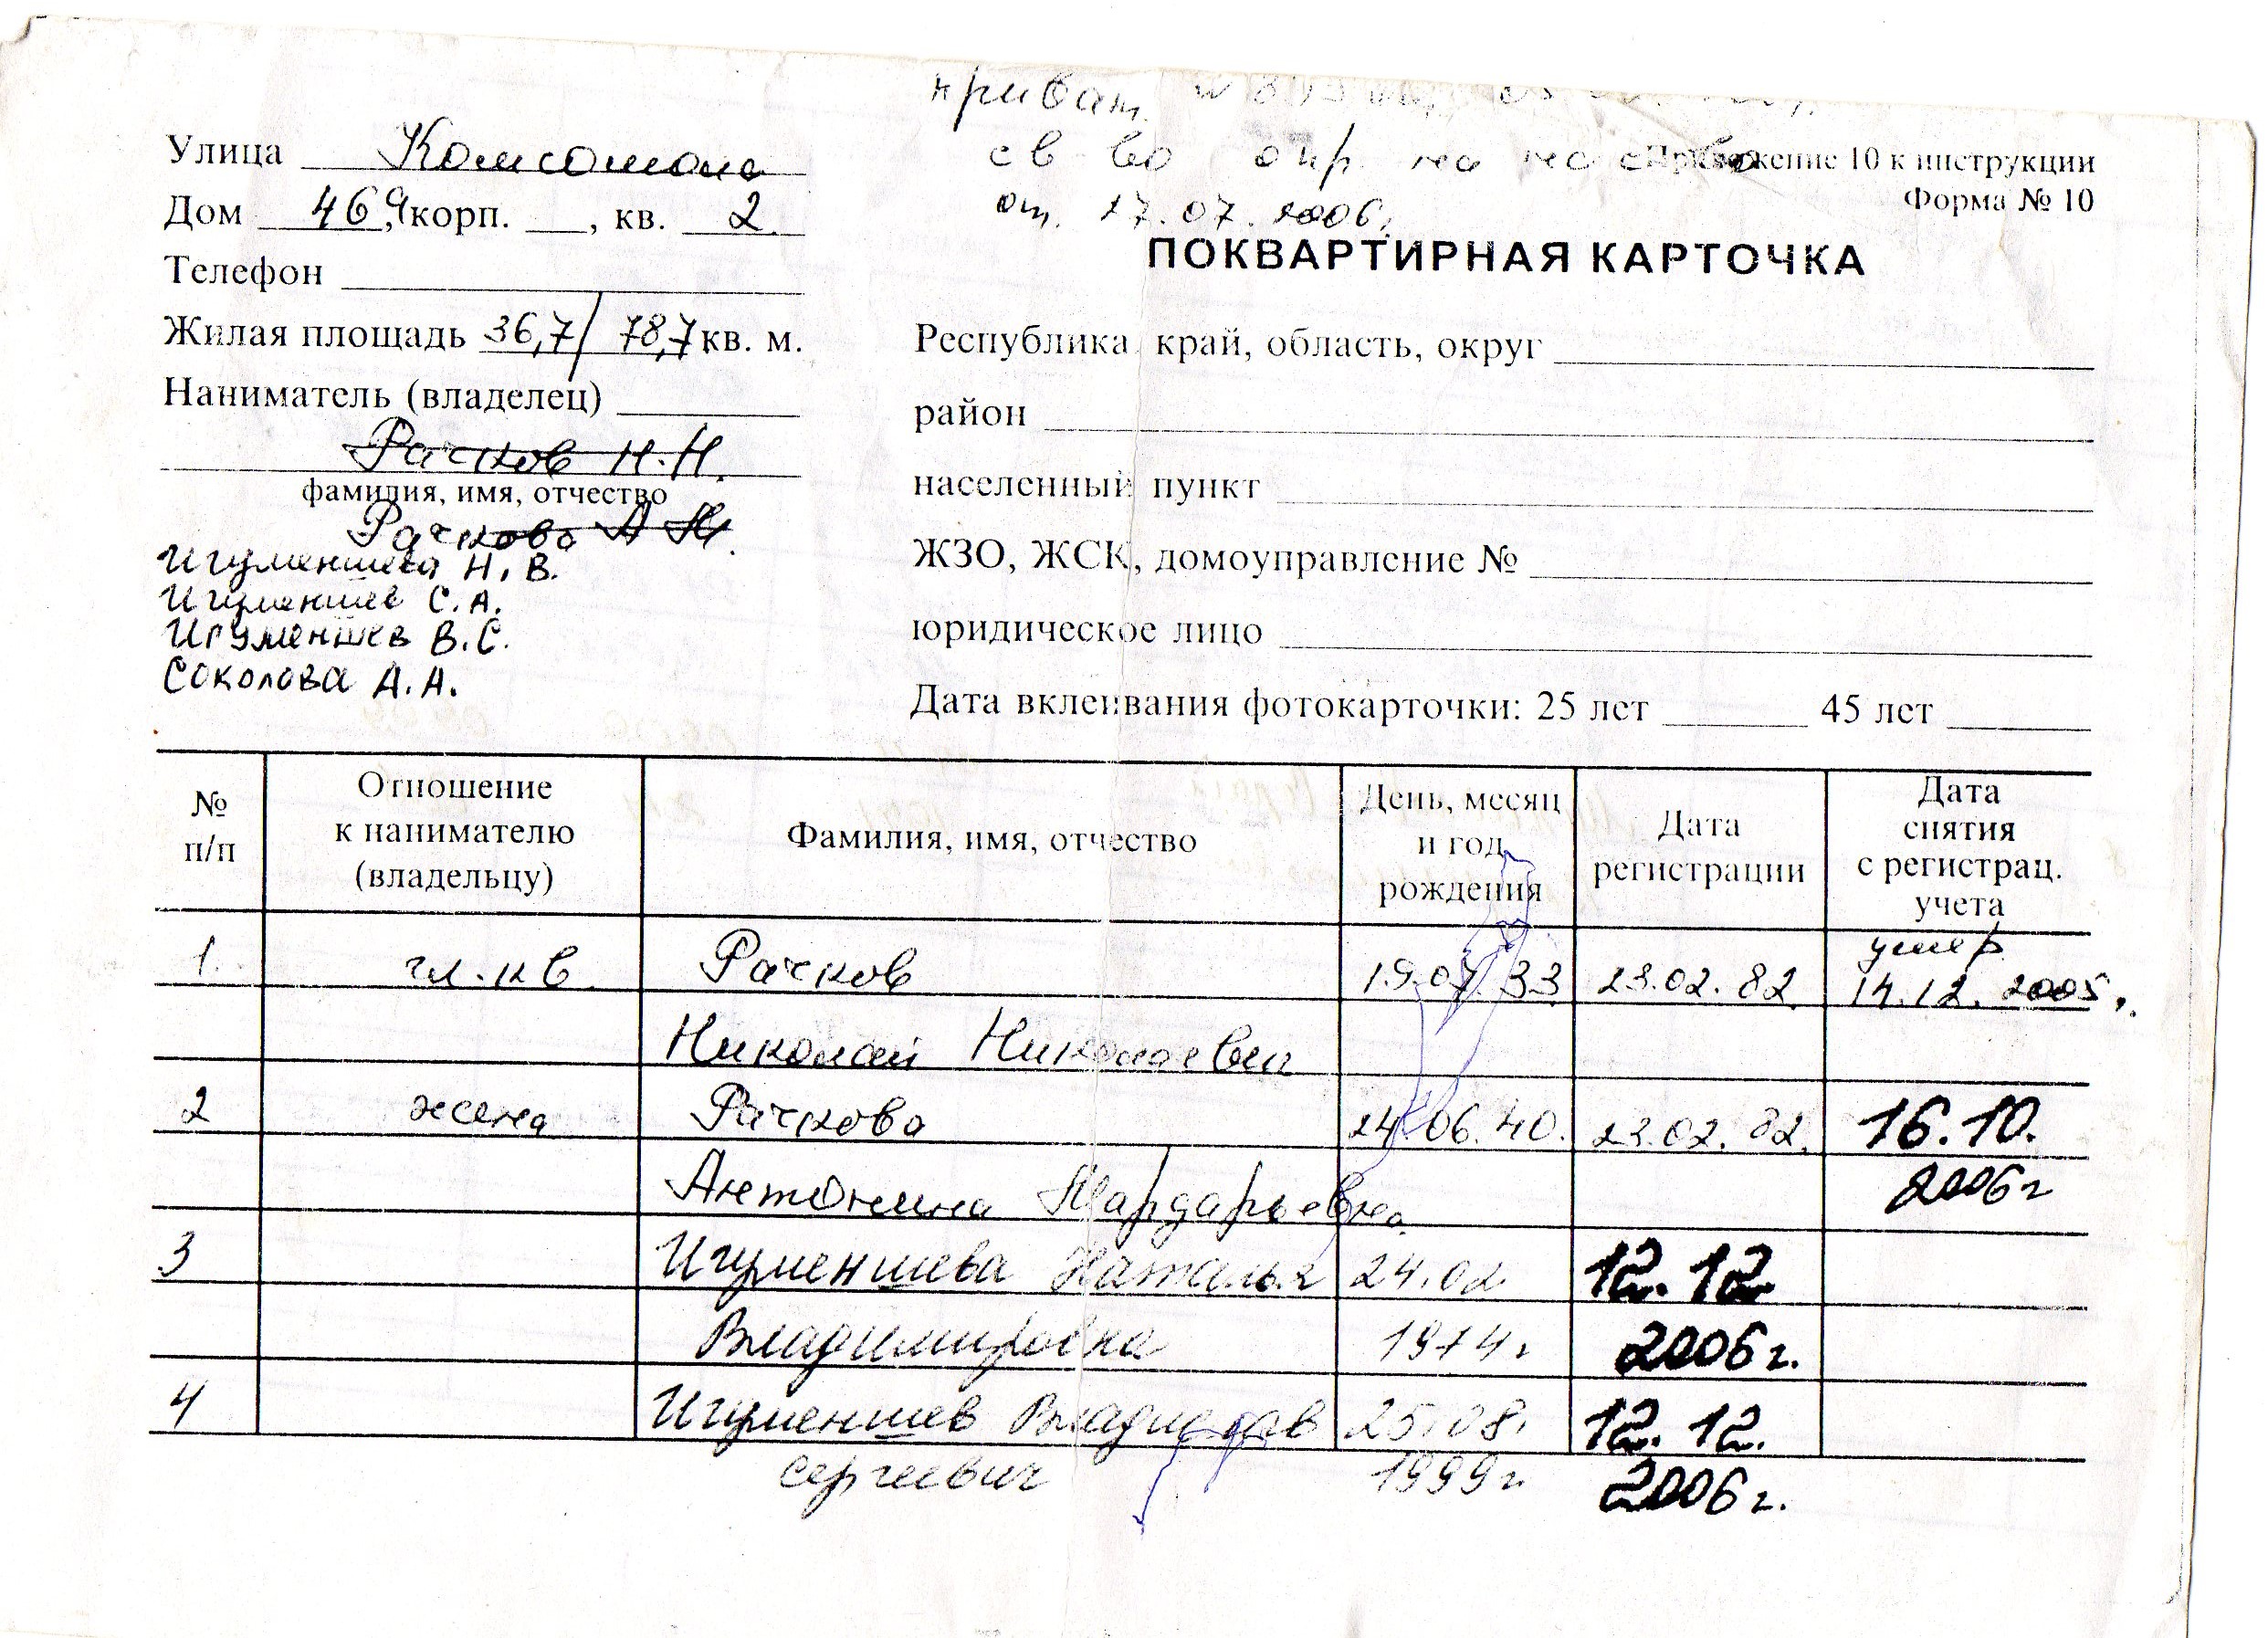 приват.
св во о пр. на насл во
от 27.07.2006,
Приложение 10 к инструкции
Форма № 10
ПОКВАРТИРНАЯ КАРТОЧКА
Улица Комсомола
Дом 46, корп. ___, кв. 2
Телефон
Жилая площадь 36,7/78,7 кв. м.
Наниматель (владелец)
Рачков Н.Н.
фамилия, имя, отчество
Рачкова А М.
Игуменшева Н.В.
Игуменшев С.А.
Игуменшев В.С.
Соколова А.А.
Республика, край, область, округ
район
населенный пункт
ЖЗО, ЖСК, домоуправление №
юридическое лицо
Дата вклеивания фотокарточки: 25 лет ___ 45 лет ___
№ п/п
Отношение к нанимателю (владельцу)
Фамилия, имя, отчество
День, месяц и год рождения
Дата регистрации
Дата снятия с регистрац. учета
1. гл. кв. Рачков 19.07.33 23.02.82. умер 14.12.2005г.
Николай Николаевич
2 жена Рачкова 24.06.40. 23.02.82. 16.10.
Антонина Мардарьевна 2006г
3 Игуменшева Наталья 24.02 12.12
Владимировна 1974г 2006г.
4 Игуменшев Владислав 25.08. 12.12.
Сергеевич 1999г. 2006г.